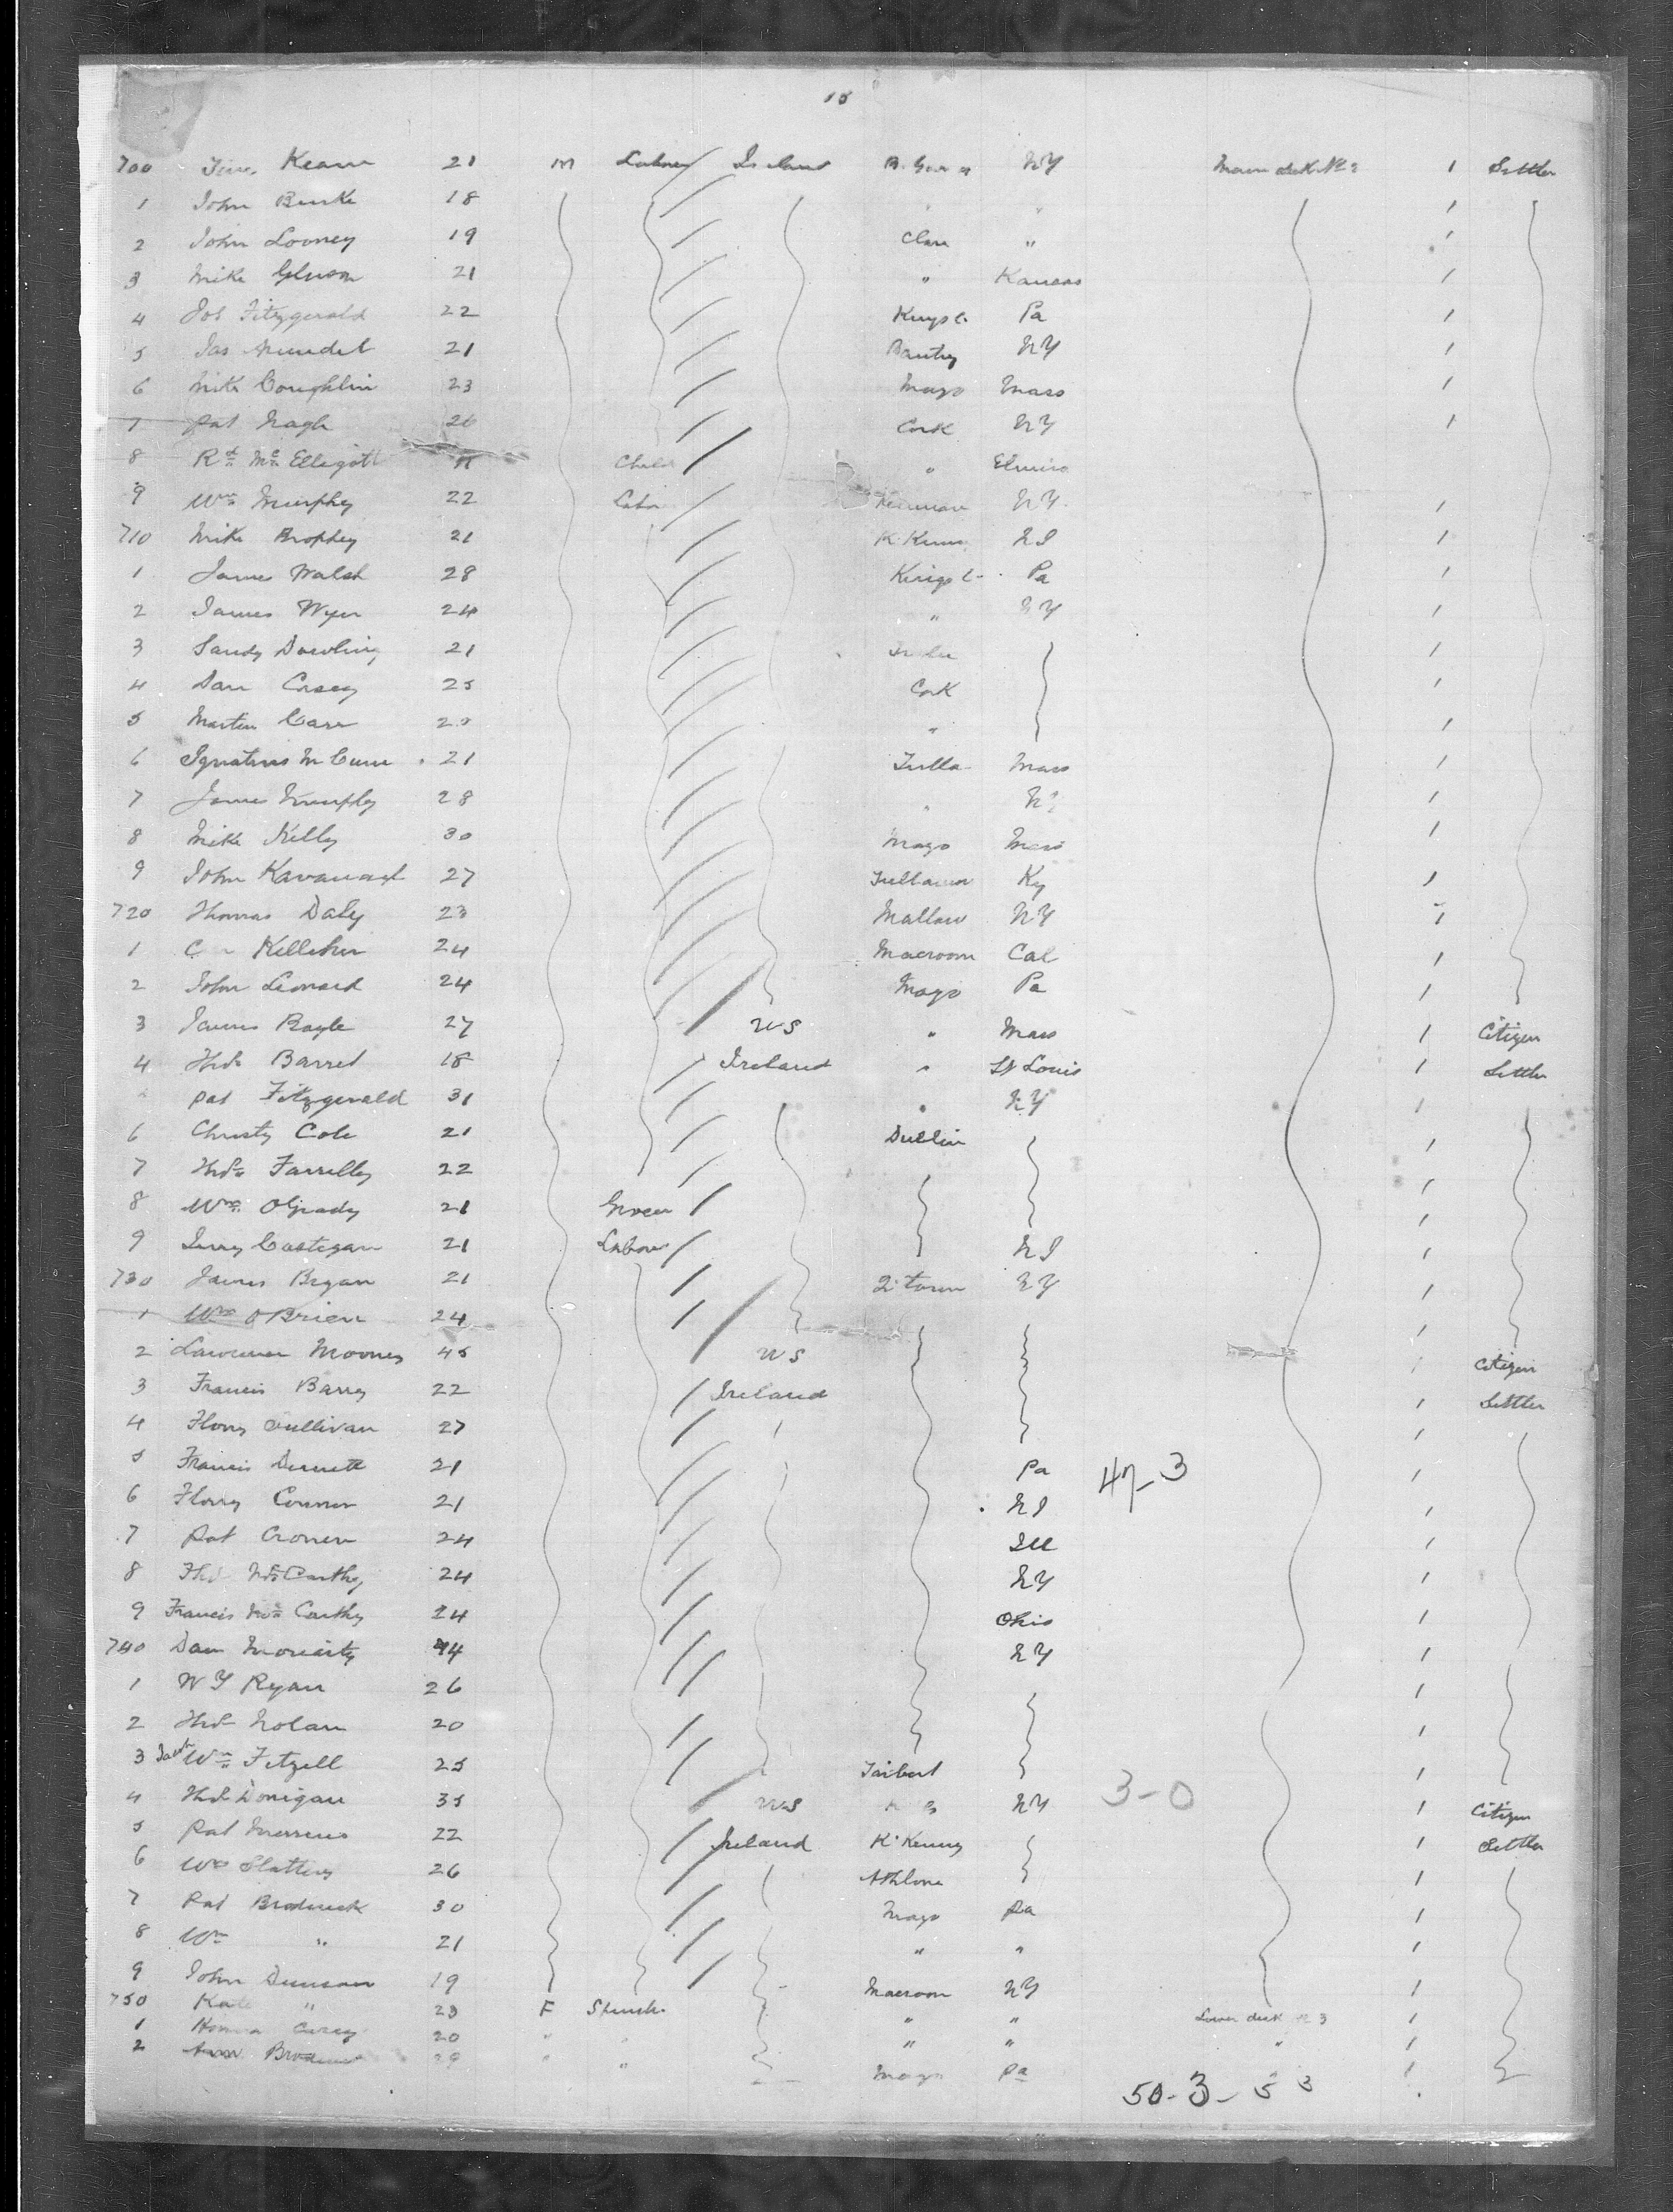 15
700 Kean 21 M Ireland NY Main deck No 2 1 Settler
1 John Burke 18 " " 1
2 John Looney 19 Clare " 1
3 Mike 21 " Kansas 1
4 Jos Fitzgerald 22 Kings C. Pa 1
5 Jas 21 Bantry NY 1
6 Mike Coughlin 23 Mayo Mass 1
7 Pat Nagle 20 Cork NY 1
8 Rd Mc Elligott 11 Child " Elmira
9 Wm Murphy 22 Labor NY 1
710 Mike Brophy 21 K. Kenny NJ 1
1 James Walsh 28 Kings C. Pa 1
2 James Wyer 24 " NY 1
3 Sandy Dowling 21 1
4 Dan Casey 25 Cork 1
5 Martin Carr " 1
6 Ignatius 21 Tulla Mass 1
7 James Murphy 28 " NY 1
8 Mike Kelly 30 Mayo Mass 1
9 John Kavanagh 27 Ky 1
720 Thomas Daly 23 Mallow NY 1
1 Kelleher 24 Macroom Cal 1
2 John Leonard 24 Mayo Pa 1
3 James Boyle 27 U S " Mass 1 Citizen
4 Thos Barret 18 Ireland " St Louis 1 Settler
Pat Fitzgerald 31 " NY 1
6 Christy Cole 21 Dublin 1
7 Thos Farrelly 22 1
8 Wm OGrady 21 Grocer 1
9 Jerry Costigan 21 Labour NJ 1
730 James Bryan 21 Q. town NY 1
1 Wm OBrien 24 1
2 Lawrence Mooney 45 U S 1 Citizen
3 Francis Barry 22 Ireland 1 Settler
4 Flory Sullivan 27 1
5 Francis 21 Pa 47-3 1
6 Flory Connor 21 NJ 1
7 Pat Cronen 24 Ill 1
8 Thos McCarthy 24 NY 1
9 Francis Mc Carthy 24 Ohio 1
740 Dan Moriarty 44 NY 1
1 W J Ryan 26 1
2 Thos Nolan 20 1
3 Wm Fitzell 25 Tarbert 1
4 Thos Donigan 35 U S NY 3-0 1 Citizen
5 Pat 22 Ireland K. Kenny 1 Settler
6 Wm Slattery 26 Athlone 1
7 Pat Broderick 30 Mayo Pa 1
8 Wm " 21 " " 1
9 John Duncan 19 Macroom NY 1
750 Kate " 23 F Lower deck No 3 " " 1
1 Carey 20 " " " " " 1
2 29 " " Mayo Pa " 1
50-3-53